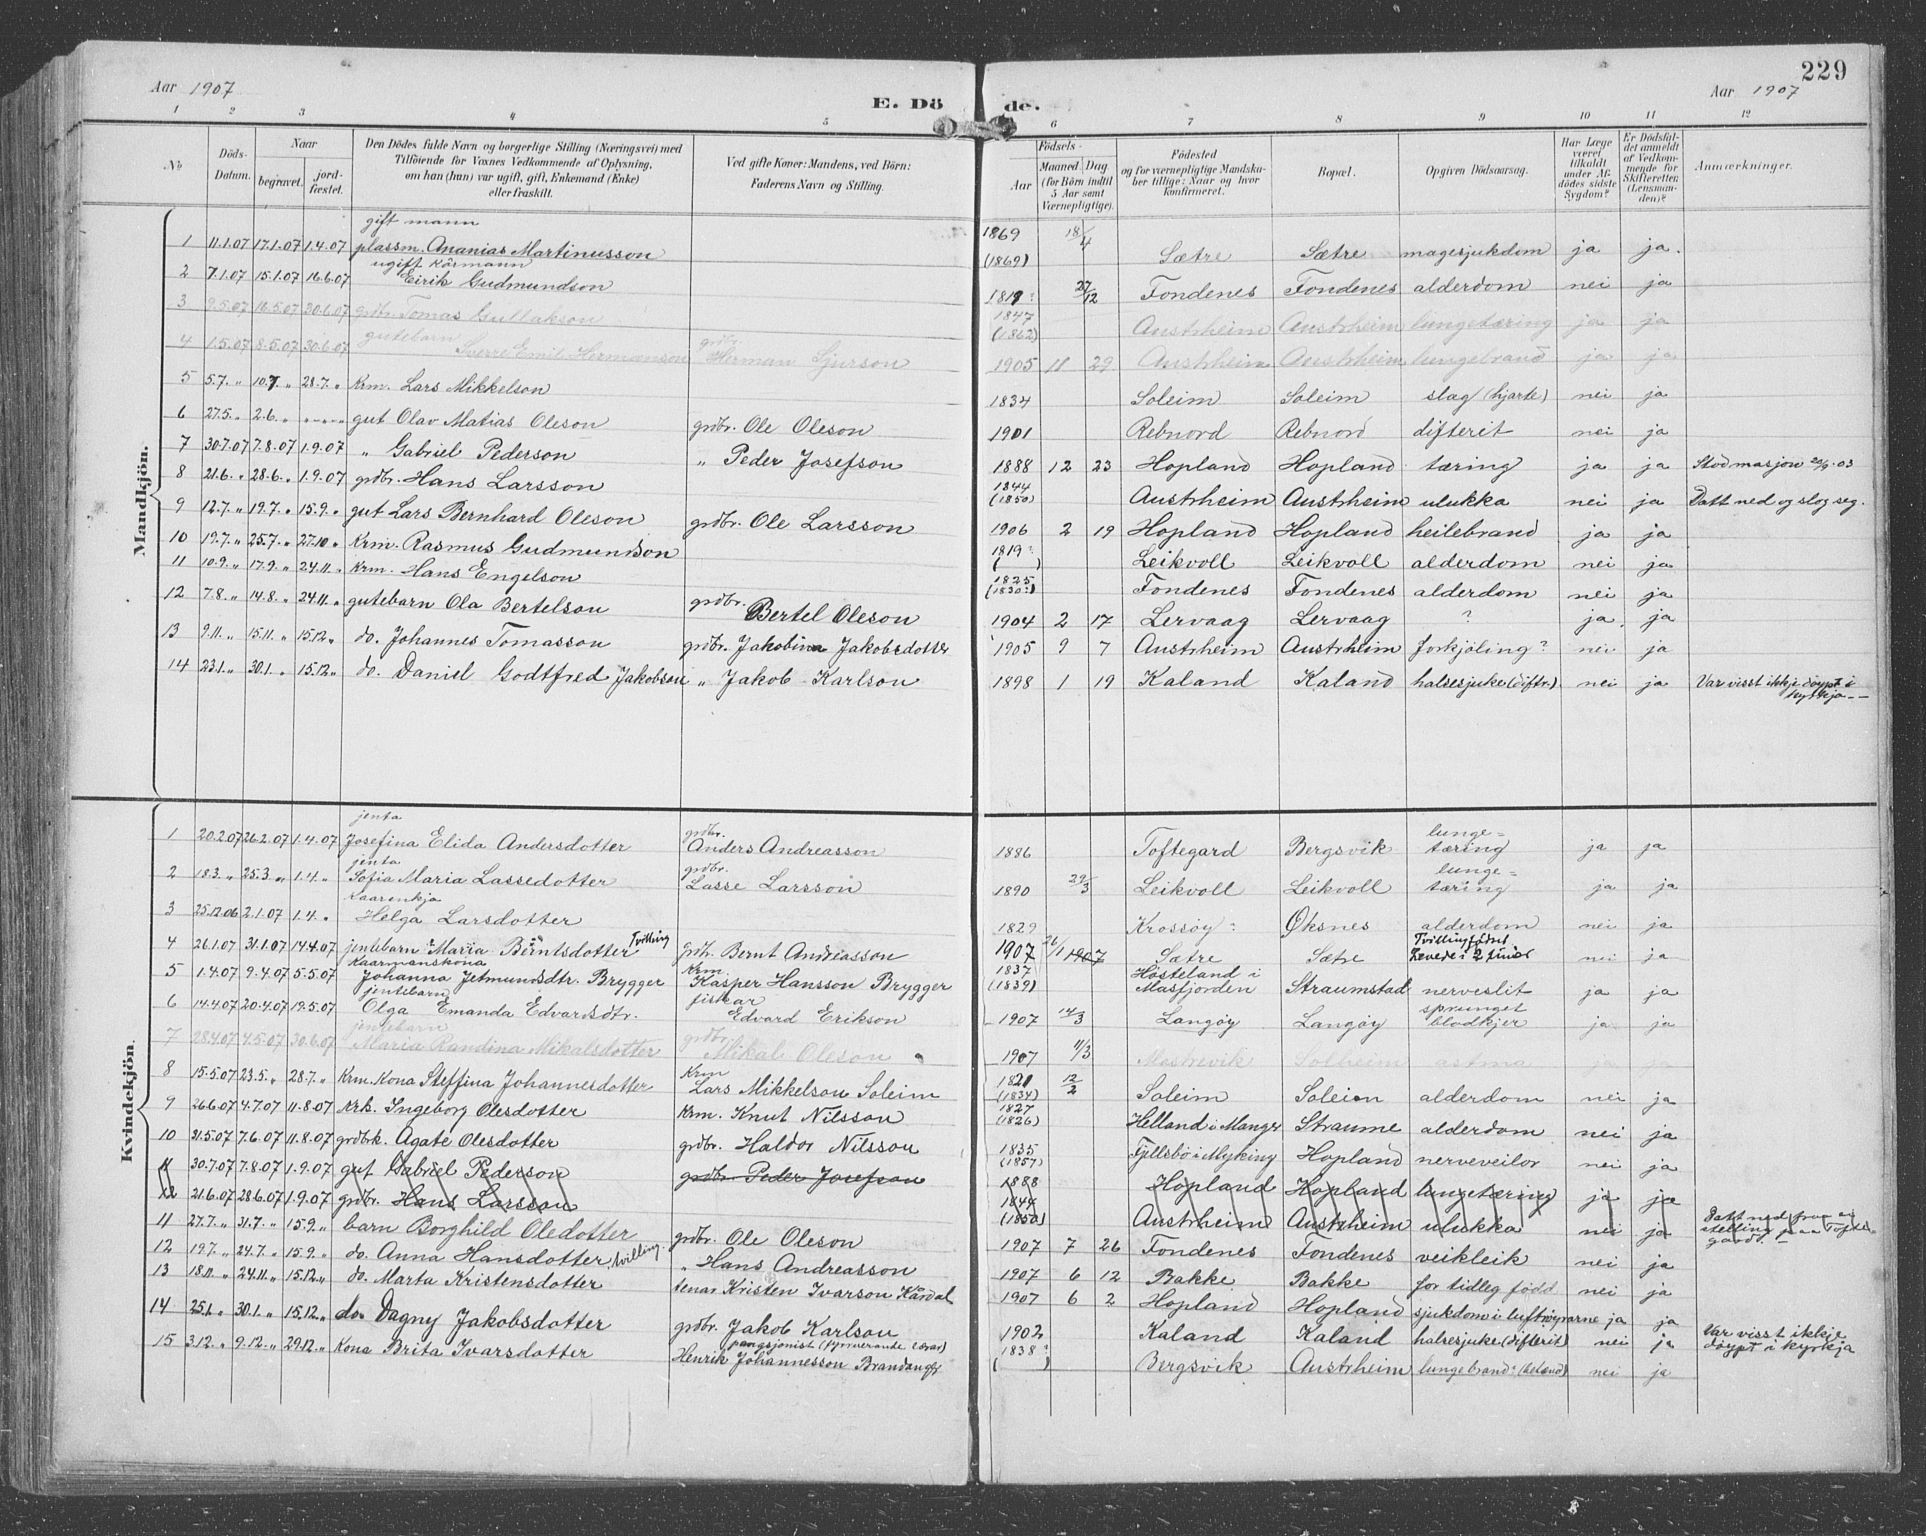 229
Aar 1907
E. Dö de.
Aar 1907
1 2 3 4 5 6 7 8 9 10 11 12
No
Döds-Datum.
Naar
begravet.
jordfæstet.
Den Dödes fulde Navn og borgerlige Stilling (Næringsvei) med Tilföiende for Voxnes Vedkommende af Oplysning, om han (hun) var ugift, gift, Enkemand (Enke) eller fraskilt.
Ved gifte Koner: Mandens, ved Börn: Faderens Navn og Stilling.
Födsels-
Aar
Maaned Dag
(for Börn indtil 5 Aar samt Værnepligtige).
Födested og for værnepligtige Mandskaber tillige: Naar og hvor konfirmeret.
Bopæl.
Opgiven Dödsaarsag.
Har Læge været tilkaldt under Afdödes sidste Sygdom?
Er Dödsfaldet anmeldt af Vedkommende for Skifteretten (Lensmanden)?
Anmærkninger.
Mandkjön.
1 11.1.07 17.1.07 1.4.07 gift mann plassm. Ananias Martinusson 1869 (1869) 18/4 Sætre Sætre magesjukdom ja ja.
2 7.1.07 15.1.07 16.6.07 ugift kårmann Eirik Gudmundson 1819? 27/12 Fondenes Fondenes alderdom nei ja
3 9.5.07 16.5.07 30.6.07 grdbr. Tomas Gullakson 1847 (1862) Austrheim Austrheim lungetæring ja ja
4 1.5.07 8.5.07 30.6.07 gutebarn Sverre Emil Hermanson grdbr. Herman Sjurson 1905 11 29 Austrheim Austrheim lungebrand ja ja
5 5.7. „ 10.7. „ 28.7. „ Krm. Lars Mikkelson 1834 Soleim Soleim slag (hjarte) nei ja
6 27.5. „ 2.6. „ gut Olav Matias Oleson grdbr. Ole Oleson 1901 Rebnord Rebnord difterit nei ja
7 30.7.07 7.8.07 1.9.07 „ Gabriel Pederson „ Peder Josefson 1888 12 23 Hopland Hopland tæring ja ja Stod masjon 20/9.03
8 21.6. „ 28.6. „ 1.9.07 grdbr. Hans Larsson 1844 (1850) Austrheim Austrheim ulukka nei ja Datt ned og slog seg.
9 12.7. „ 19.7. „ 15.9. „ gut Lars Bernhard Oleson grdbr. Ole Larsson 1906 2 19 Hopland Hopland heilebrand ja ja
10 19.7. „ 25.7. „ 27.10 „ Krm. Rasmus Gudmundson 1819? ( ) Leikvoll Leikvoll alderdom nei ja
11 10.9. „ 17.9. „ 24.11. „ Krm. Hans Engelson 1825 (1830?) Fondenes Fondenes alderdom nei ja
12 7.8. „ 14.8. „ 24.11. „ gutebarn Ola Bertelson grdbr. Bertel Oleson 1904 2 17 Lervaag Lervaag ? ja ja
13 9.11. „ 15.11. „ 15.12. „ do. Johannes Tomasson grdbr. Jakobina Jakobsdotter 1905 9 7 Austrheim Austrheim forkjöling? nei ja
14 23.1. „ 30.1. „ 15.12. „ do. Daniel Godtfred Jakobson „ Jakob Karlson 1898 1 19 Kaland Kaland halsesjuke (diftr.) nei ja Var visst ikkje döypt i kyrkja
Kvindekjön.
1 20.2.07 26.2.07 1.4.07 jenta Josefina Elida Andersdotter grdbr. Anders Andreasson 1886 Toftegard Bergsvik lungetæring ja ja
2 18.3. „ 25.3 „ 1.4. „ jenta Sofia Maria Lassedotter grdbr. Lasse Larsson 1890 29/3 Leikvoll Leikvoll lungetæring ja ja
3 25.12.06 2.1.07 1.4. „ Kaarenkja Helga Larsdotter 1829 Krossöy? Öksnes alderdom nei ja
4 26.1.07 31.1.07 14.4.07 jentebarn Maria Berntsdotter Tvilling grdbr. Bernt Andreasson 1907 26/1 1907 Sætre Sætre Tvillingfödsel Levede i 2 timar nei ja
5 1.4.07 9.4.07 5.5.07 Kaarmanskona Johanna Jetmundsdtr. Brygger Krm. Kasper Hansson Brygger 1837 (1839) Hosteland i Masfjorden Straumstad nerveslit ja ja
6 14.4.07 20.4.07 19.5.07 jentebarn Olga Emanda Edvardsdtr. fiskar Edvard Erikson 1907 14/3 Langöy Langöy sprunget blodkjer ja ja
7 28.4.07 4.5.07 30.6.07 jentebarn Maria Randina Mikalsdotter grdbr. Mikal Oleson 1907 11/3 Mastrevik Solheim astma ja
8 15.5.07 23.5. „ 28.7. „ Krm. Kona Steffina Johannesdotter Krm Lars Mikkelson Soleim 1821 (1834) 12/2 Soleim Soleim alderdom nei ja
9 26.6.07 4.7.07 11.8.07 Krk. Ingeborg Olesdotter Krm. Knut Nilsson 1827 (1826) Helland i Manger Straume alderdom nei ja
10 21.5.07 7.6.07 11.8.07 grdbrk. Agate Olesdotter grdbr. Haldor Nilsson 1835 (1857) Fjellsbö i Myking Hopland nerveveilor nei ja
11 30.7.07 7.8.07 1.9.07 gut Gabriel Pederson grdbr. Peder Josefson 1888 Hopland Hopland lungetæring ja ja
12 21.6.07 28.6.07 1.9.07 grdbr. Hans Larsson 1844 (1850) Austrheim Austrheim ulukka nei ja Datt ned fraa ei stelling paa Toftegardt.
11 27.7. „ 31.7. „ 15.9. „ barn Borghild Oledotter grdbr. Ole Oleson 1907 7 26 Fondenes Fondenes veikleik nei ja
12 19.7. „ 24.7. „ 15.9. „ do. Anna Hansdotter tvilling „ Hans Andreasson 1907 6 12 Bakke Bakke for tidleg född nei ja
13 18.11. „ 24.11. „ 15.12. „ do. Marta Kristensdotter tenar Kristen Ivarson Kårdal 1907 6 2 Hopland Hopland sjukdom i luftröyrarne ja ja
14 25.1. „ 30.1. „ 15.12. „ do. Dagny Jakobsdotter grdbr. Jakob Karlson 1902 Kaland Kaland halsesjuke (difterit) nei ja Var visst ikkje döypt i kyrkja
15 3.12. „ 9.12. „ 29.12. „ Kona Brita Ivarsdotter pangsjonist Henrik Johannesson Brandanger 1838? ( ) Bergsvik Austrheim lungebrand? nei ja